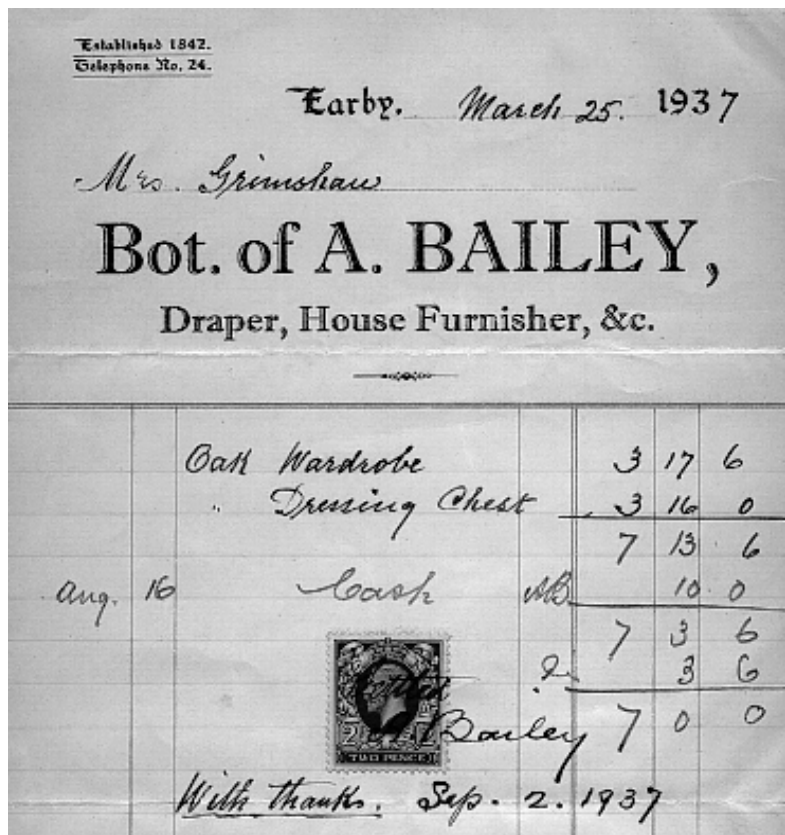 Established 1842.
Telephone No. 24.
Earby. March 25. 1937
Mrs. Grimshaw
Bot. of A. BAILEY,
Draper, House Furnisher, &c.
Oak Wardrobe 3 17 6
" Dressing Chest 3 16 0
7 13 6
Aug. 16 Cash AB 10 0
7 3 6
3 6
Settled
2 2
A Bailey 7 0 0
TWO PENCE
With thanks. Sep. 2. 1937